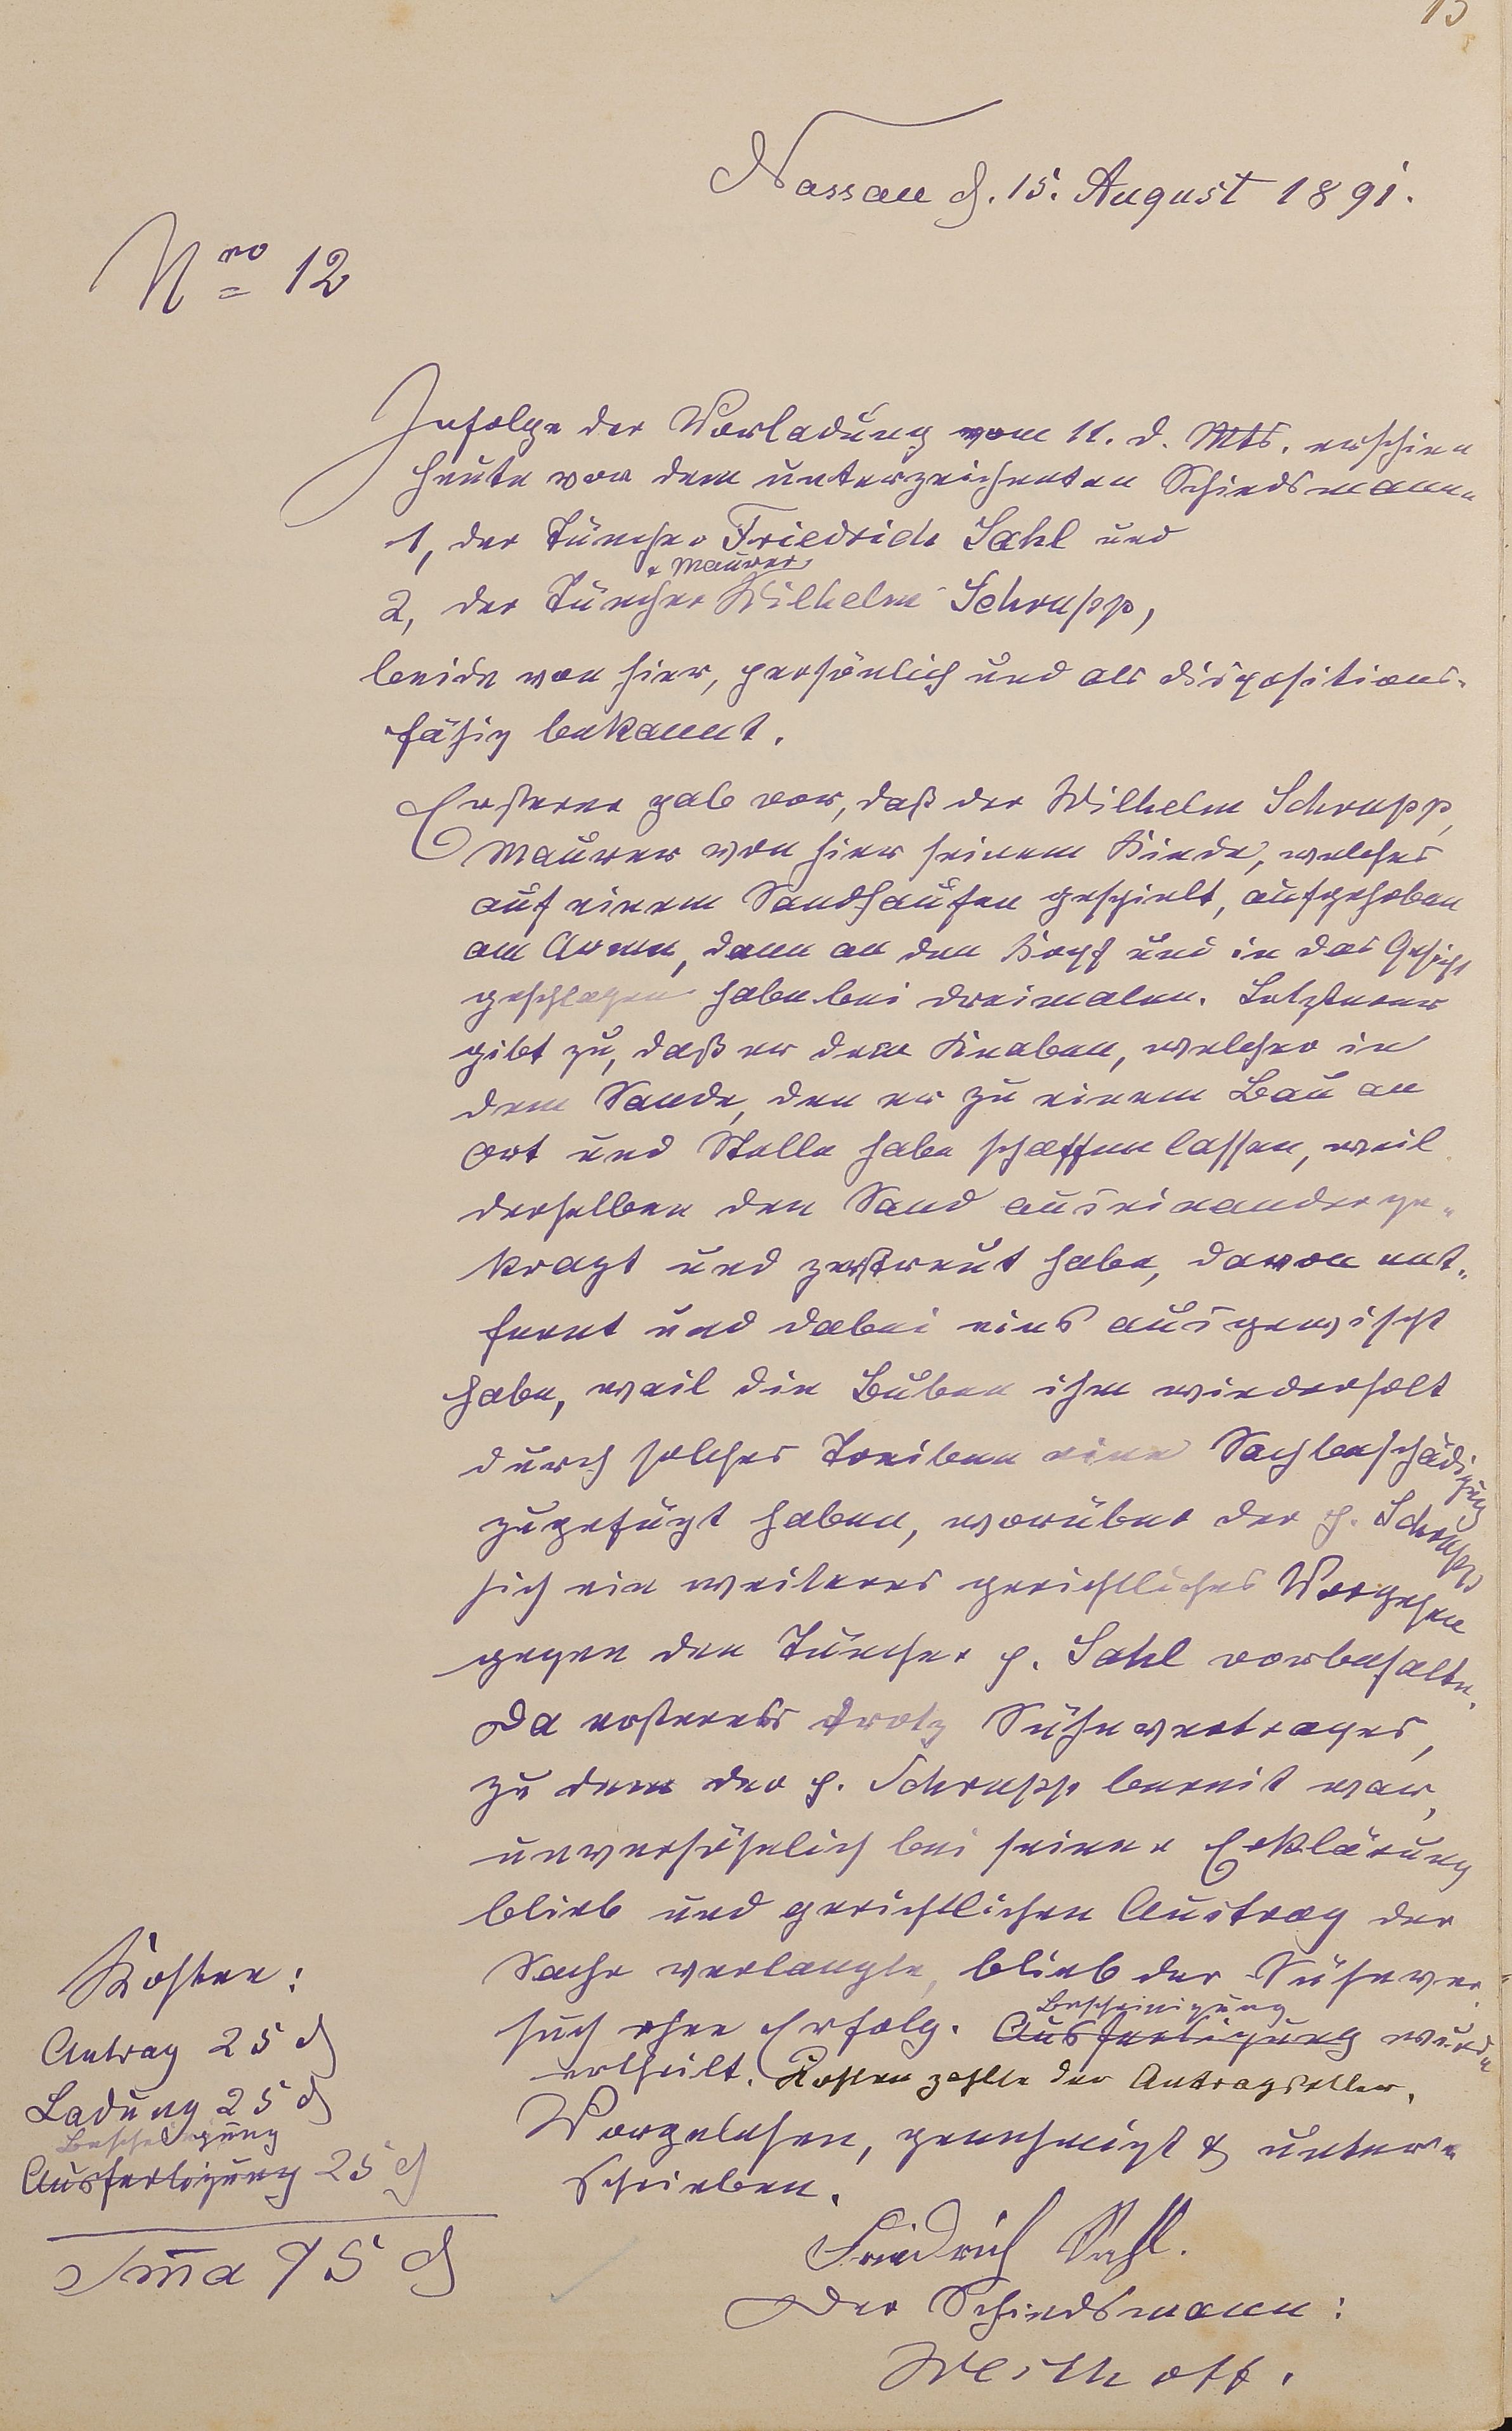 Nassau d. 15. August 1891.
Nro 12
Infolge der Vorladung vom 11. d. Mts. erschien
heute vor dem unterzeichneten Schiedsmann
1, der Tüncher Friedrich Sahl und
& Maurer
2, der Tüncher Wilhelm Schrupp,
beide von hier, persönlich und als dispositions-
fähig bekannt.
Ersterer gab vor, daß der Wilhelm Schrupp,
Maurer von hier seinem Kinde, welches
auf einem Sandhaufen gespielt, aufgehoben
am Arme, dann an den Kopf und in das Gesicht
geschlagen habe bei dreimalen. Letzterer
gibt zu, daß er dem Knaben, welcher in
dem Sande, den er zu einem Bau an
Ort und Stelle habe schaffen lassen, weil
derselben den Sand auseinanderge-
kratzt und zerstreut habe, davon ent-
fernt und dabei eins ausgewischt
habe, weil die Buben ihm wiederholt
durch solches Treiben eine Sachbeschädigung
zugefügt haben, worüber der p. Schrupp
sich ein weiteres gerichtliches Vorgehen
gegen den Tüncher p. Sahl vorbehalte.
Da ersterer trotz Sühnevertrages,
zu dem der p. Schrupp bereit war,
unversöhnlich bei seiner Erklärung
blieb und gerichtlichen Austrag der
Sache verlangte, blieb der Sühnever-
such ohne Erfolg. Ausfertigung wurde
Bescheinigung
ertheilt. Kosten zahlte der Antragsteller.
Vorgelesen, genehmigt & unter-
schrieben.
Friedrich Sahl.
Der Schiedsmann:
Kosten:
Antrag 25 ₰
Ladung 25 ₰
Bescheinigung
Ausfertigung 25 ₰
Sma 75 ₰